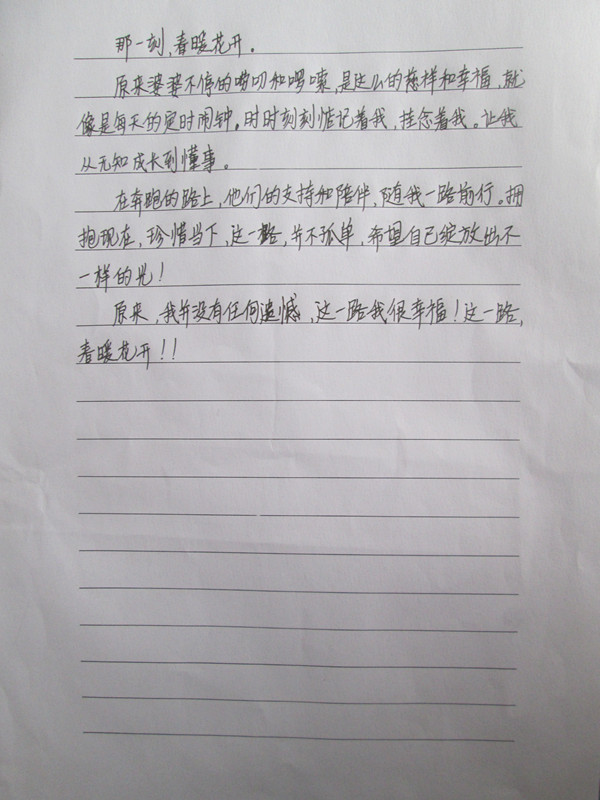 那一刻,春暖花开。
原来婆婆不停的唠叨和啰嗦,是这么的慈祥和幸福,就
像是每天的定时闹钟,时时刻刻惦记着我,挂念着我。让我
从无知成长到懂事。
在奔跑的路上,他们的支持和陪伴,随我一路前行。拥
抱现在,珍惜当下,这一路,并不孤单,希望自己绽放出不
一样的光!
原来,我并没有任何遗憾,这一路我很幸福!这一路,
春暖花开!!